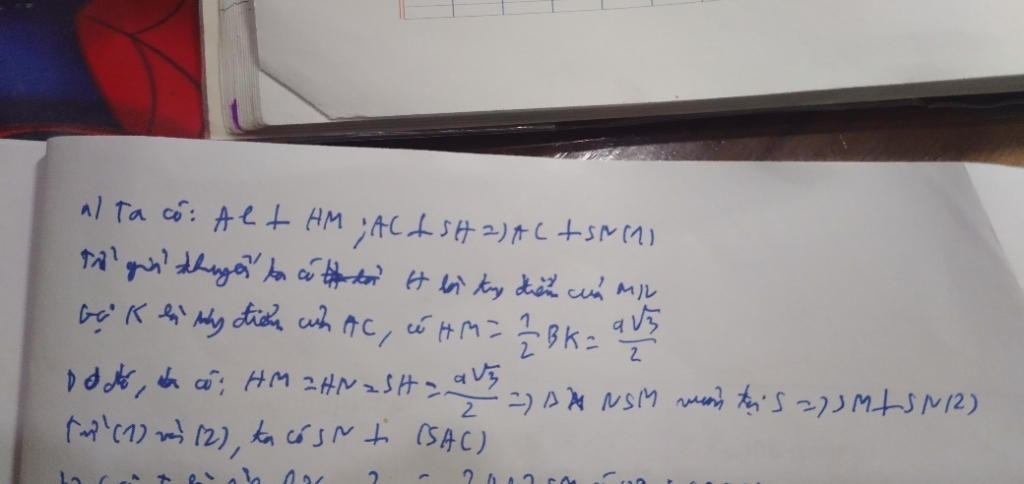 a) Ta có: AC ⊥ HM ; AC ⊥ SH => AC ⊥ SN (1)
Từ giả thuyết ta có H là trung điểm của MN
Gọi K là trung điểm của AC, có HM = 1/2 BK = a√3/2
Do đó, ta có: HM = HN = SH = a√3/2 => Δ NSM vuông tại S => SM ⊥ SN (2)
Từ (1) và (2), ta có SN ⊥ (SAC)